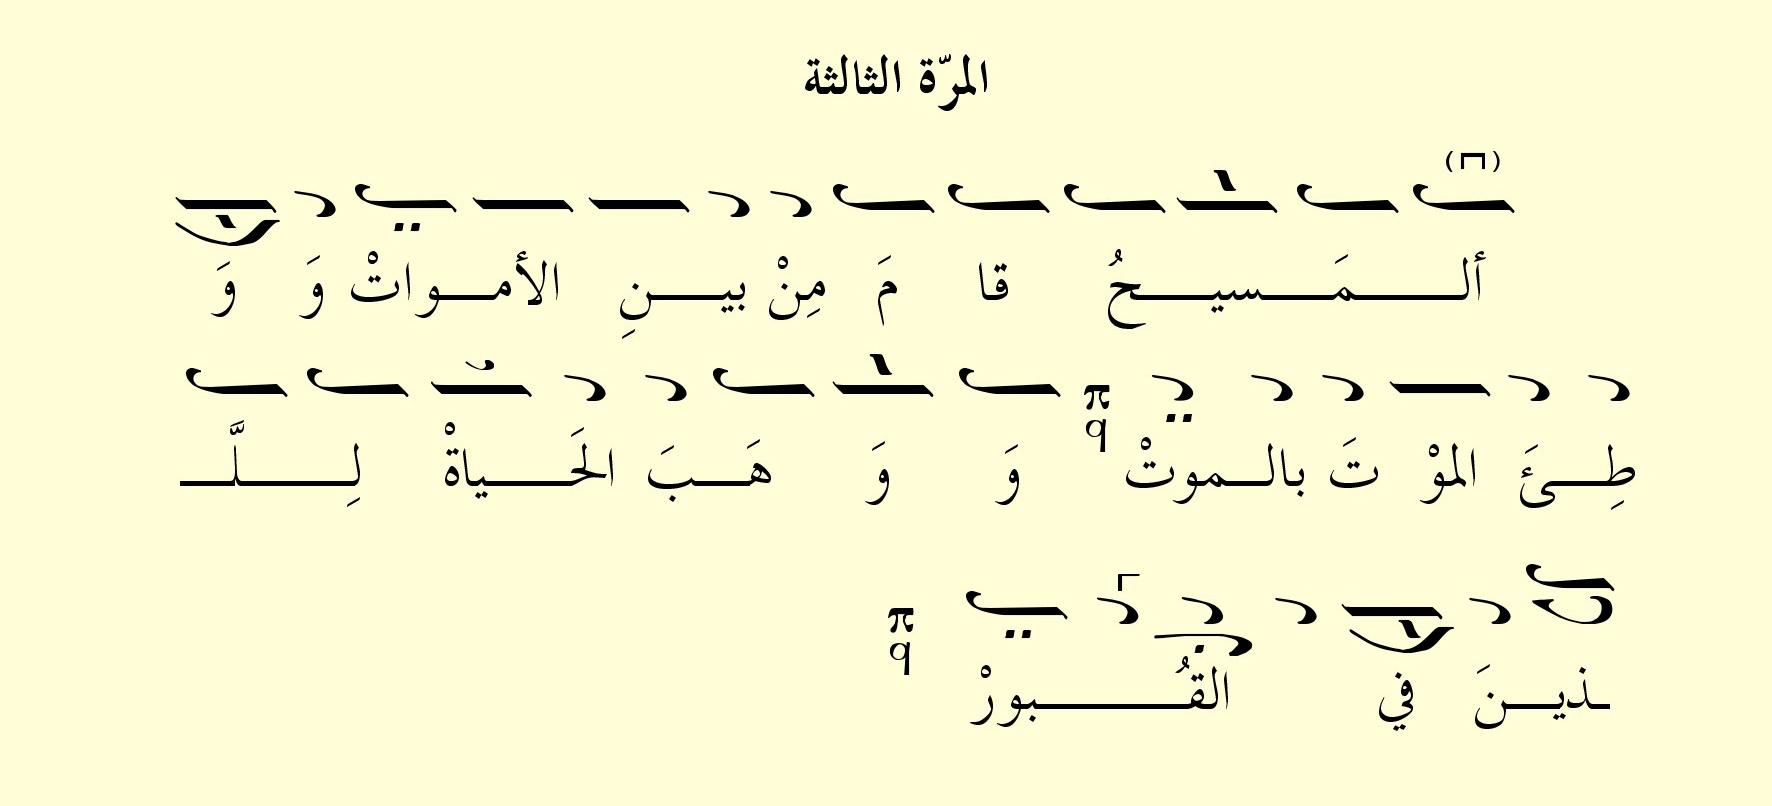 المرّة الثالثة
ألـــمَـــسيـــحُ قا مَ مِنْ بيـــنِ الأمـــواتْ وَ وَ
طِـــئَ الموْ تَ بالـــموتْ وَ وَ هَـــبَ الحَـــياةْ لِـــلَّـــ
ـذيـــنَ في القُـــبورْ